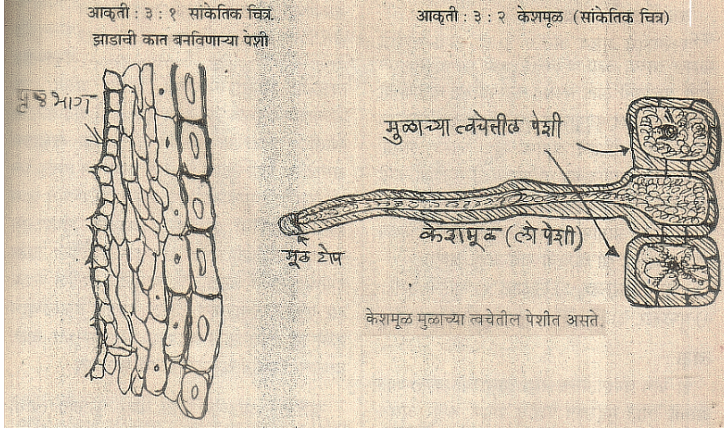 आकृती : ३ : १ सांकेतिक चित्र.
झाडाची कात बनविणाऱ्या पेशी
पृष्ठभाग
आकृती : ३ : २ केशमूळ (सांकेतिक चित्र)
मुळाच्या त्वचेतील पेशी
केशमूळ (ली पेशी)
मूळ टोप
केशमूळ मुळाच्या त्वचेतील पेशीत असते.